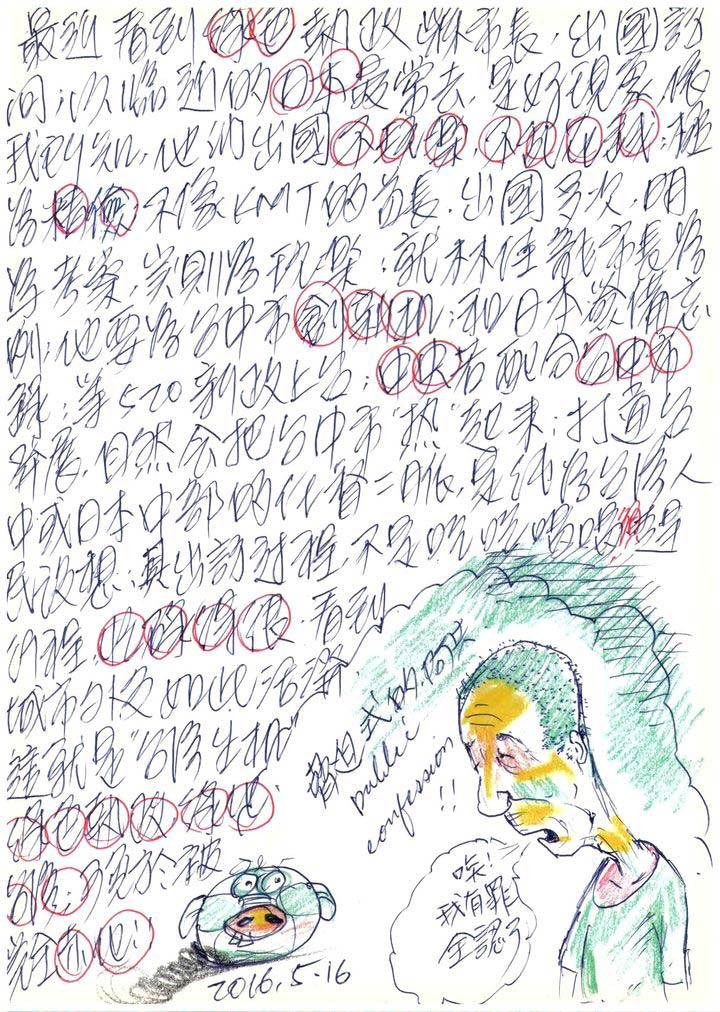 最近看到綠色執政縣市長，出國訪
問，以臨近的日本最常去，是好現象，依
我所知，他們出國不玩樂，不
不像KMT的首長，出國多次，明
為考察，實則為玩樂，就林佳龍市長為
例，他要為台中市創商机，和日本簽備忘
錄，等520新政上台，中央若配合台中市
發展，自然會把台中市"热"起來，打造台
中或日本中部的任督二脈，是純為台灣人
民設想，其出訪過程，不是吃吃喝喝
行程，看到
城市外交如此活潑
這就是"台灣生机"
綠色執政綠色
台灣，
完全
脅迫式的
Public
confession
!!
唉！
我有罪
全認了
2016.5-16